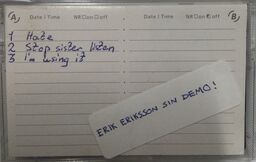 A) Date | Time NR □ on □ off Date | Time NR □ on □ off (B)
1 Hate
2 Stop sister, listen
3 I'm using it
ERIK ERIKSSON SIN DEMO!